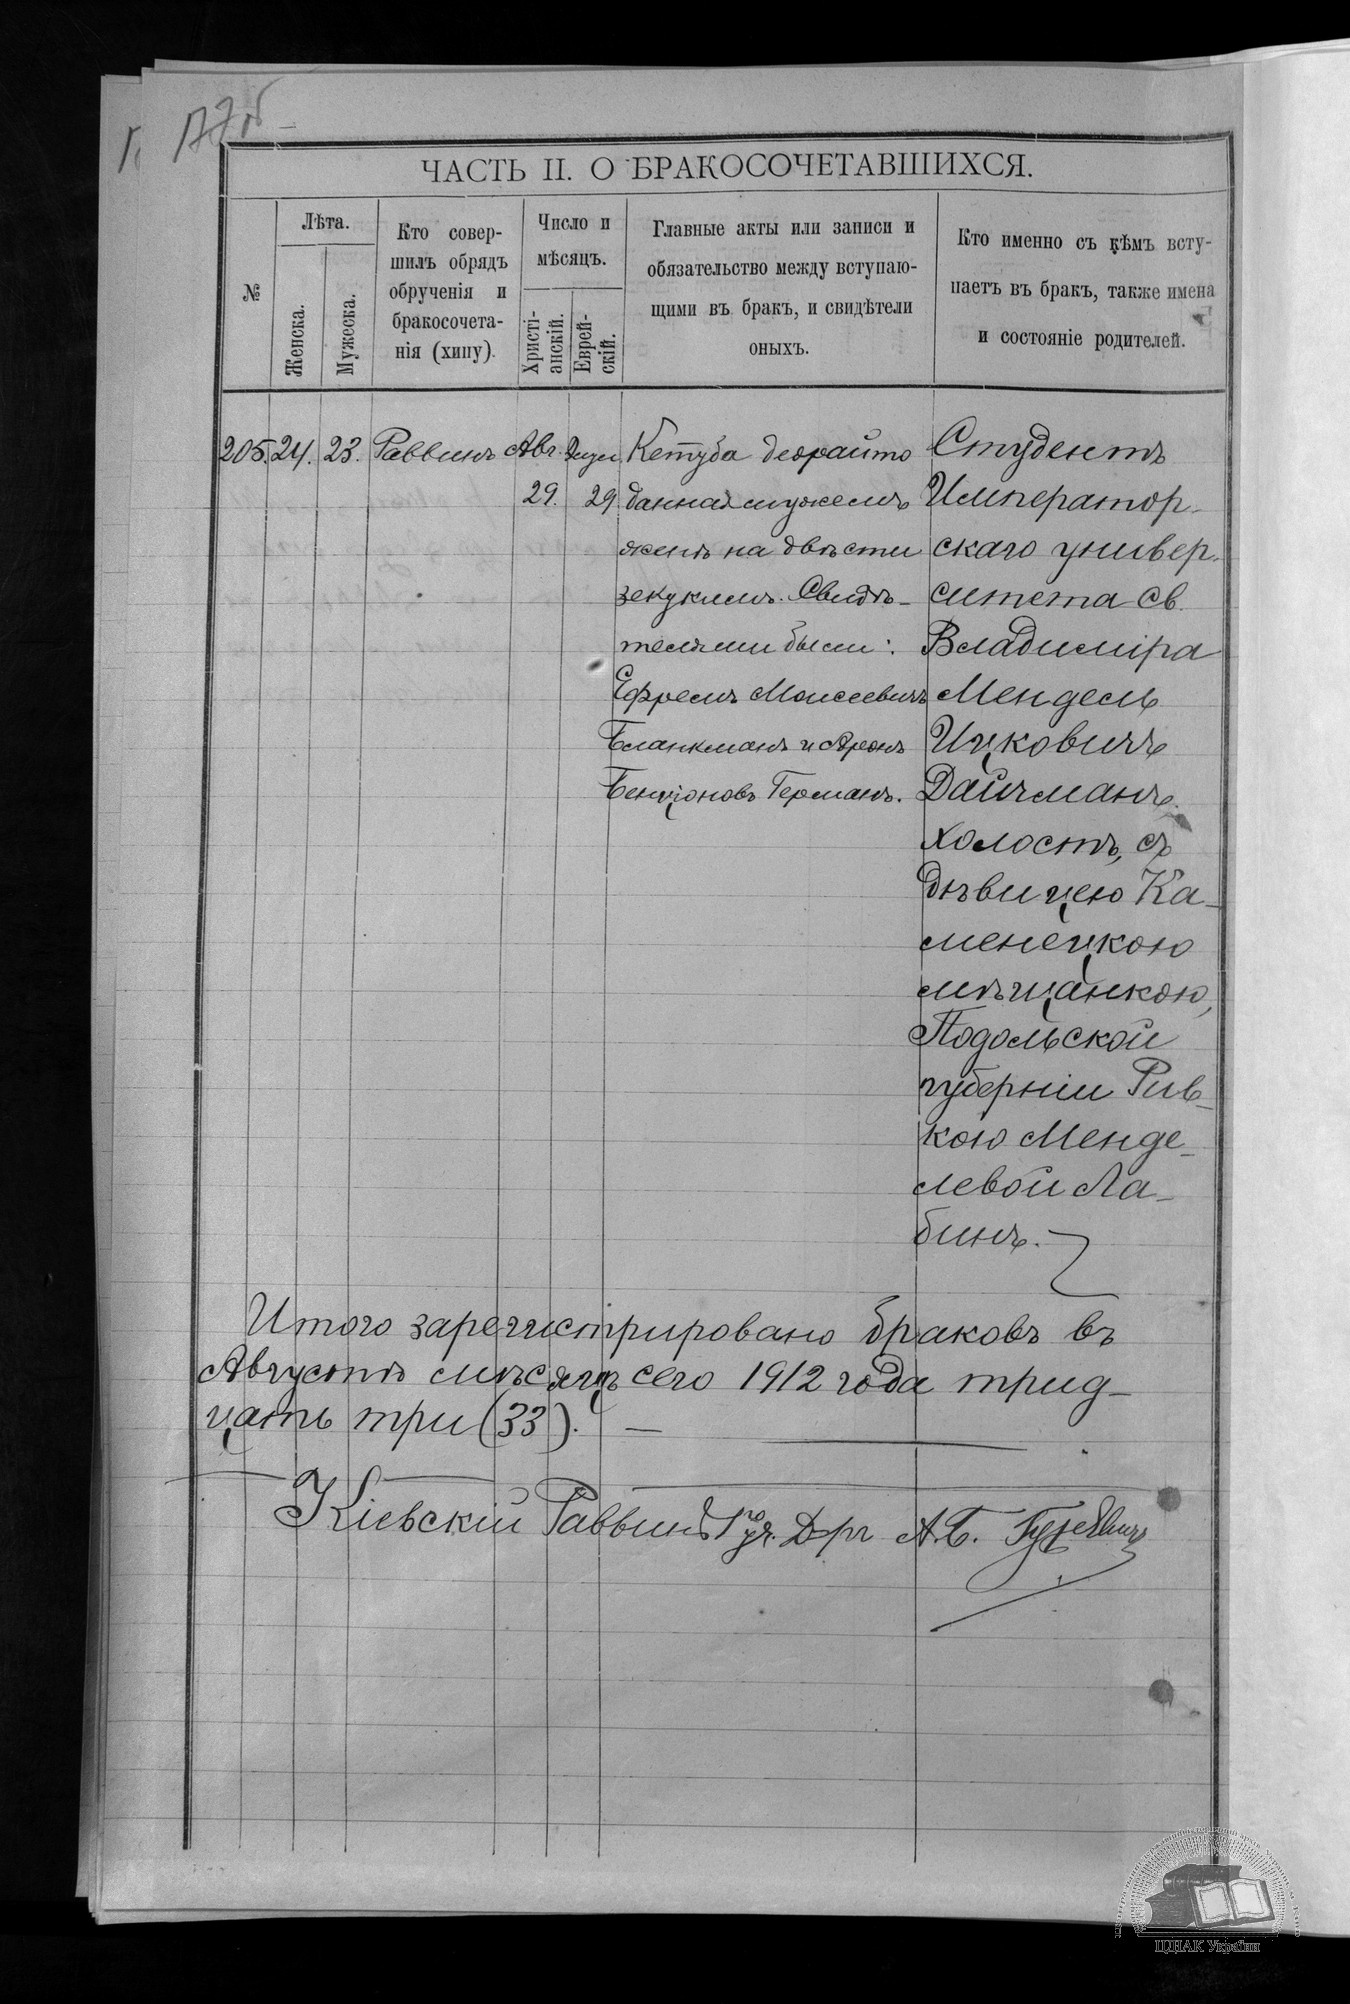 ЧАСТЬ II. О БРАКОСОЧЕТАВШИХСЯ.
№
Лѣта.
Женска.
Мужеска.
Кто совер-
шилъ обрядъ
обрученія и
бракосочета-
нія (хипу).
Число и
мѣсяцъ.
Христі-
анскій.
Еврей-
скій.
Главные акты или записи и
обязательство между вступаю-
щими въ бракъ, и свидѣтели
оныхъ.
Кто именно съ кѣмъ всту-
паетъ въ бракъ, также имена
и состояніе родителей.
205. 24. 23. Раввинъ Авг. Элул
29. 29
Кетуба деорайто
данная мужемъ
женѣ на двѣсти
зекукимъ. Свидѣ-
телями были:
Ефремъ Моисеевичъ
Бланкманъ и Аронъ
Бенціоновъ Германъ.
Студентъ
Император-
скаго универ-
ситета Св.
Владиміра
Мендель
Ицковичъ
Дайчманъ.
холостъ, съ
дѣвицею Ка-
менецкою
мѣщанкою,
Подольской
губерніи Рив-
кою Менде-
левой Ла-
бинъ.
Итого зарегистрировано браковъ въ
Августѣ мѣсяцѣ сего 1912 года трид-
цать три (33). —
Кіевскій Раввинъ А. Б. Гуревичъ
ЦДІАК України